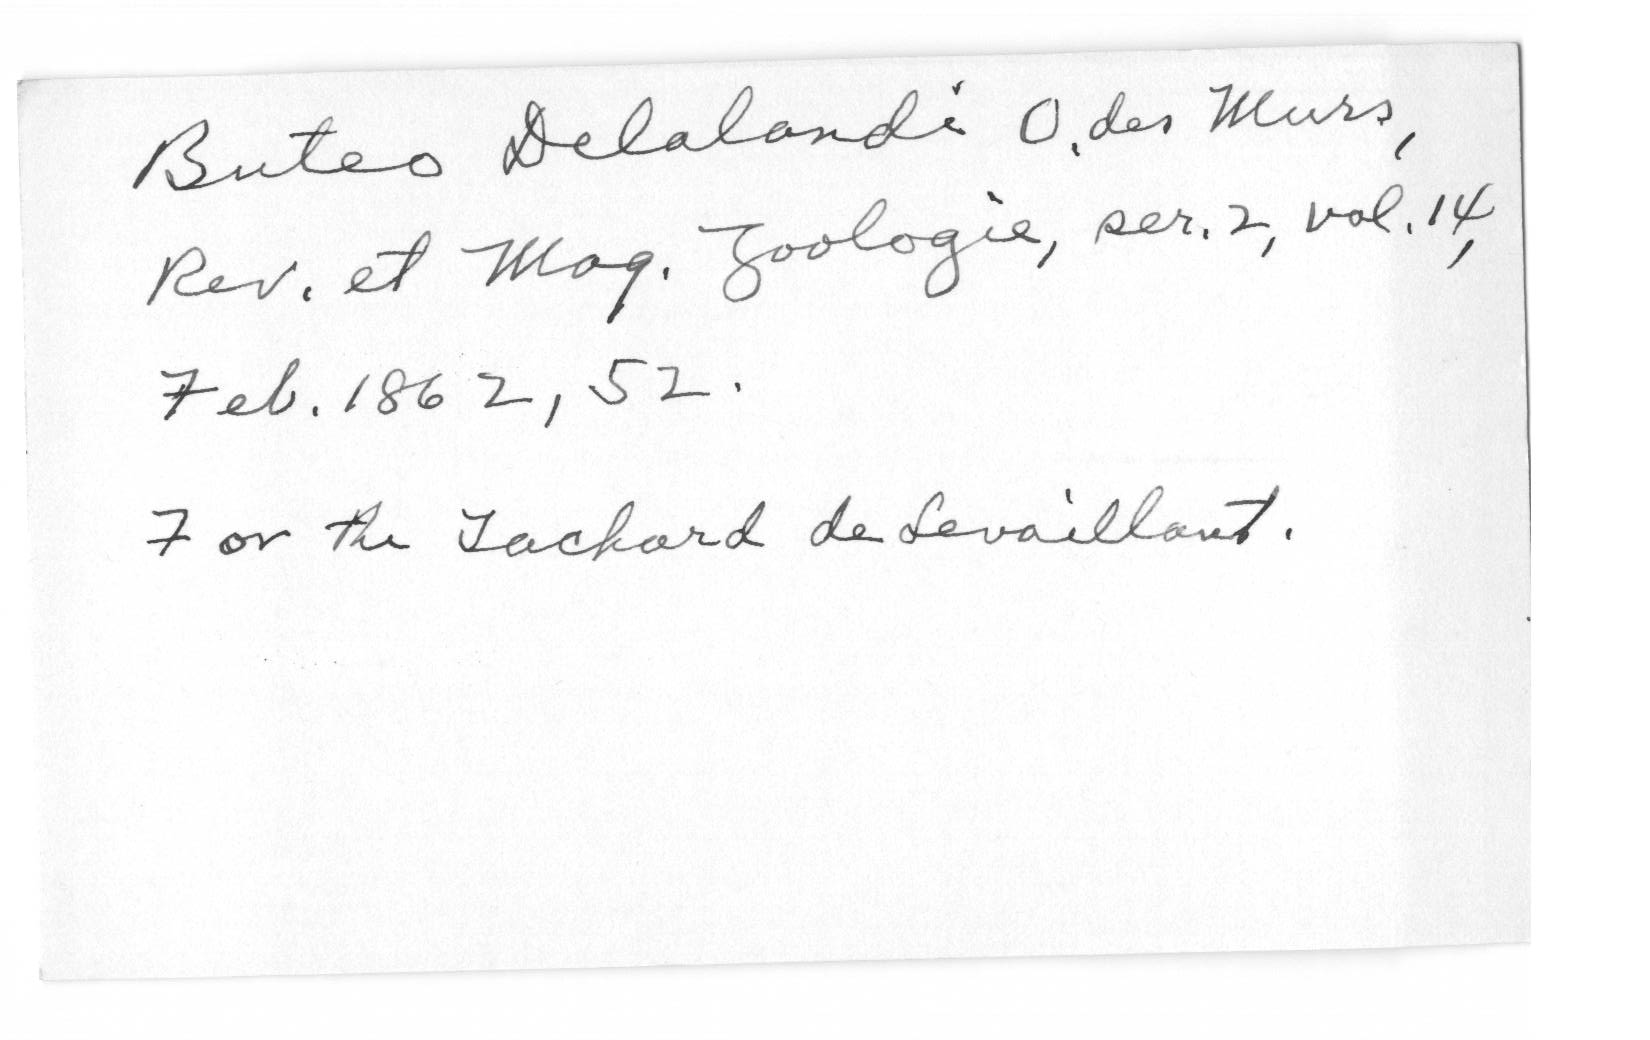 Buteo Delalandi O. des Murs,
Rev. et Mag. Zoologie, ser. 2, vol. 14,
Feb. 1862, 52.
For the Tachard de Levaillant.